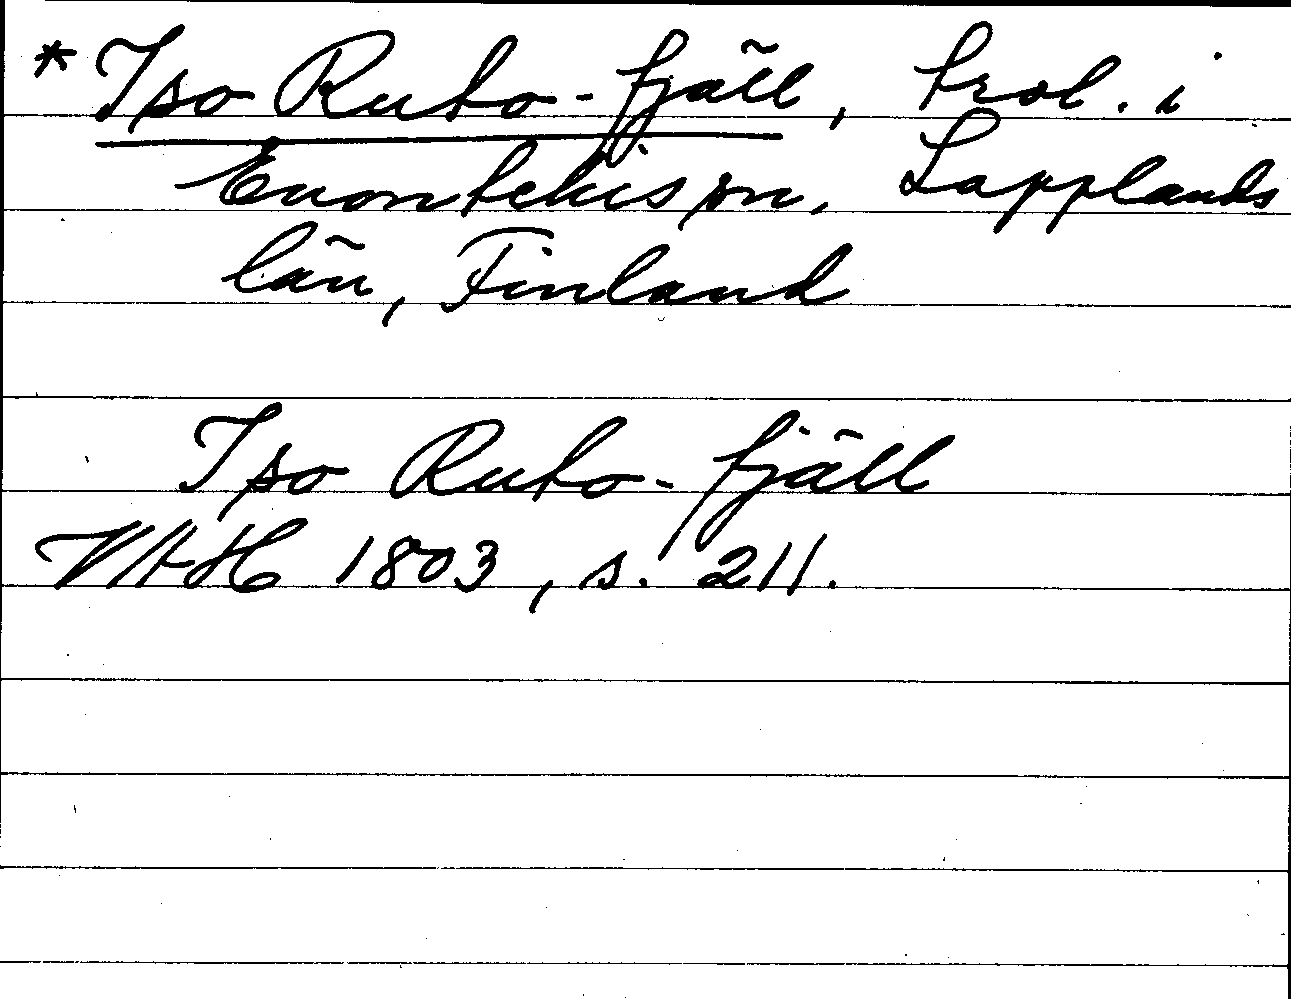 * Iso Ruto-fjäll, trol. i
Enontekis sn, Lapplands
län, Finland
Iso Ruto-fjäll
VAH 1803, s. 211.